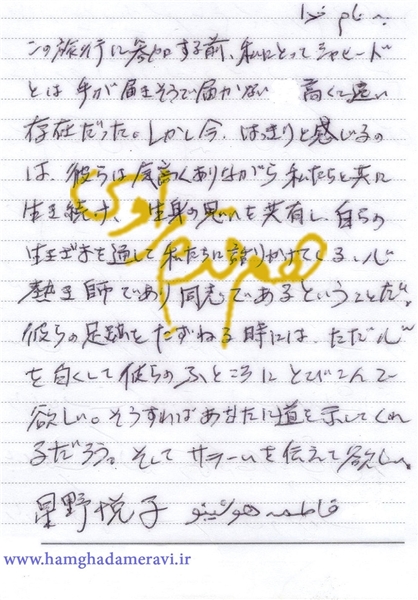 به نام خدا
この旅行に参加する前、私にとってシャヒード
とは 手が届きそうで届かない 高くて遠い
存在だった。しかし今、はっきりと感じるの
は、彼らは気高くありながら 私たちと共に
生き続け、生身の思いを共有し、自らの
生きざまを通して私たちに語りかけてくる、心
熱き師であり同志であるということだ。
彼らの足跡をたずねる時には、ただ心
を白くして彼らのふところに とびこんで
欲しい。そうすればあなたに道を示してくれ
るだろう。そして サラームを伝えて欲しい。
星野悦子 فاطمه هوشینو
همقدم راوی
www.hamghadameravi.ir